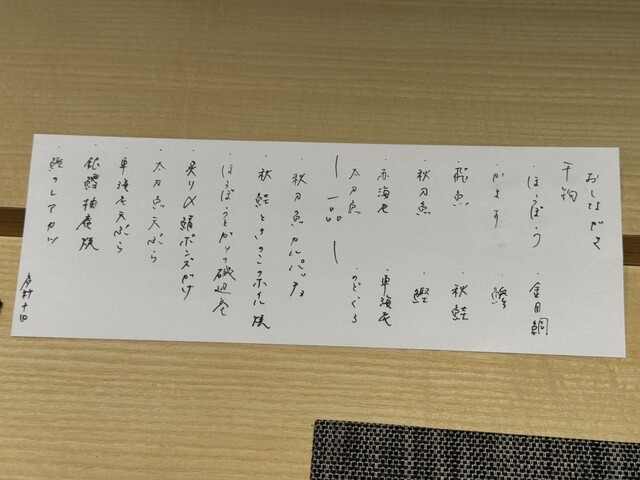 おしながき
干物
・ほうぼう ・金目鯛
・かます
・飛魚 ・秋鮭
・秋刀魚 ・鰹
・赤海老 ・車海老
・太刀魚 ・のどぐろ
| 一品 |
・秋刀魚カルパッチョ
・秋鮭ときのこのホイル焼
・ほうぼうとガリの磯辺巻
・炙り〆鯖ポンズがけ
・太刀魚天ぷら
・車海老天ぷら
・銀鱈柚庵焼
・鰹のレアカツ